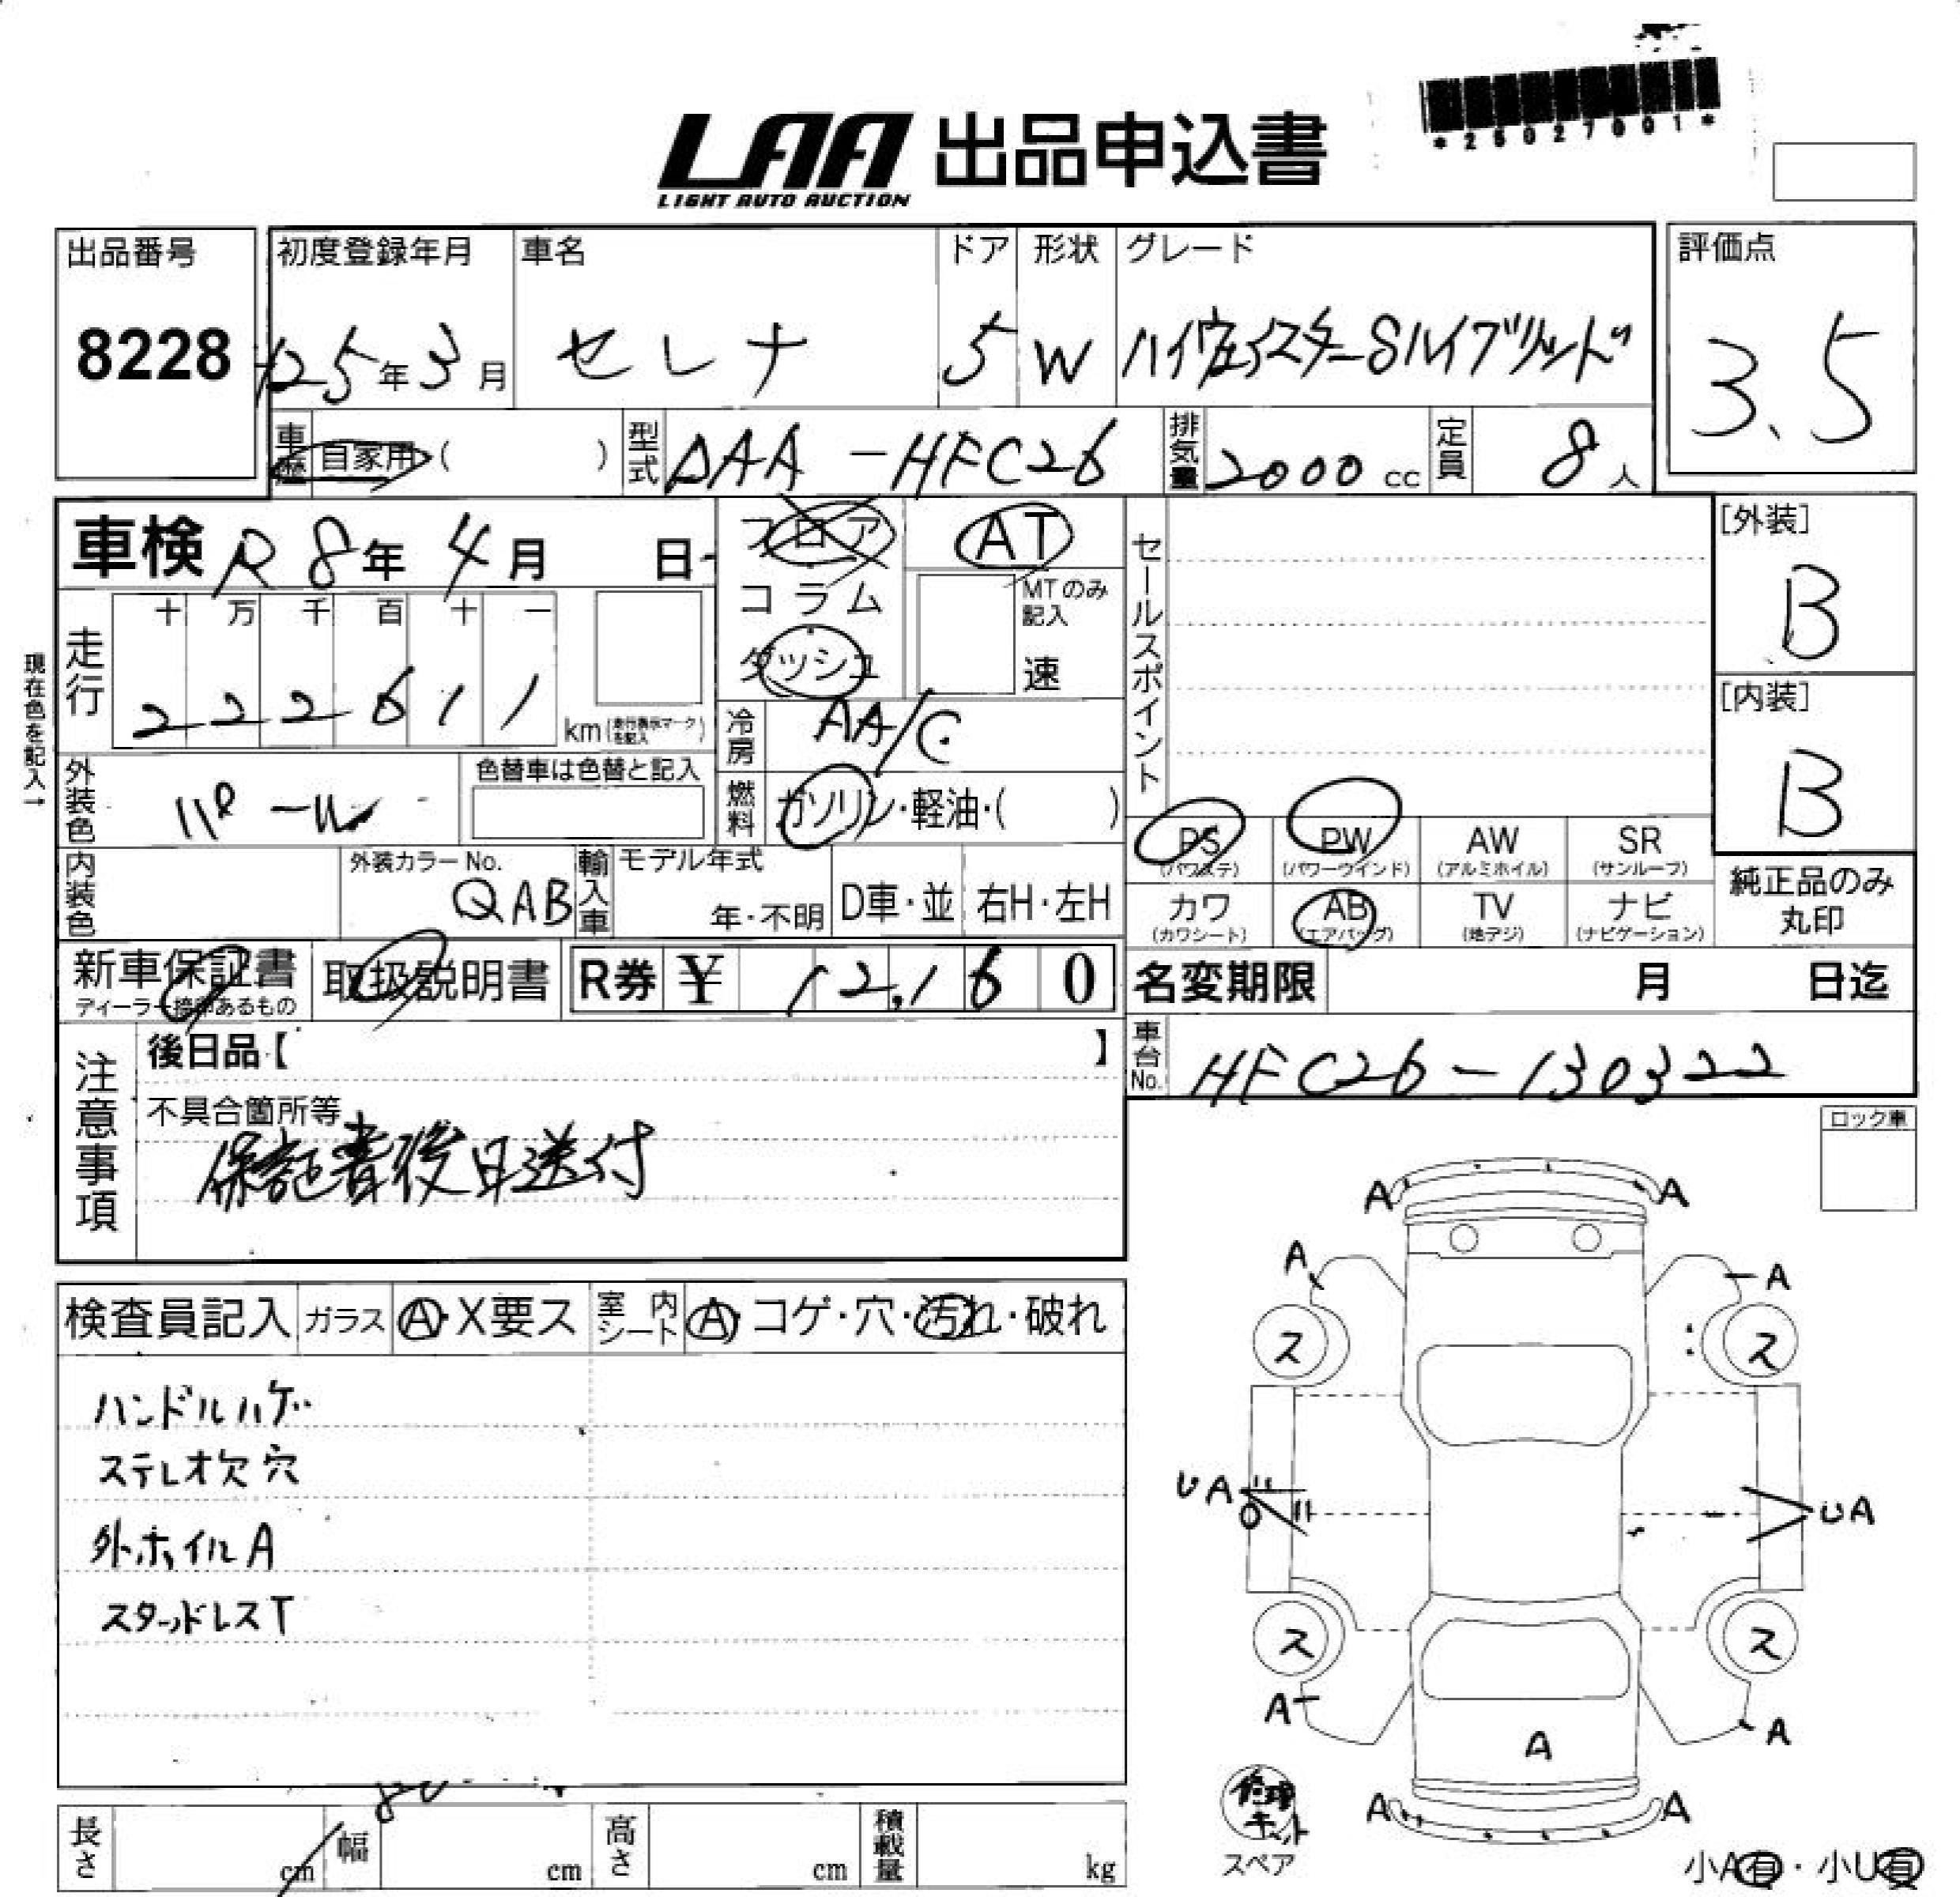 *26027001*
LAA 出品申込書
LIGHT AUTO AUCTION
出品番号 初度登録年月 車名 ドア 形状 グレード 評価点
8228 H25年3月 セレナ 5 W ハイウェイスターSハイブリッド 3.5
車歴 自家用・( ) 型式 DAA-HFC26 排気量 2000cc 定員 8人
車検 R8年 4月 日
フロア AT
コラム MTのみ記入
ダッシュ 速
セールスポイント
[外装]
B
走行 十 万 千 百 十 一
222611 km(走行表示マークを記入)
現在色を記入→
[内装]
B
冷房 AA/C
外装色 パール 色替車は色替と記入
燃料 ガソリン・軽油・( )
PS PW AW SR
(パワステ) (パワーウインド) (アルミホイル) (サンルーフ)
純正品のみ
丸印
内装色 外装カラーNo. QAB 輸入車 モデル年式 年・不明 D車・並 右H・左H
カワ AB TV ナビ
(カワシート) (エアバッグ) (地デジ) (ナビゲーション)
新車保証書 取扱説明書 R券 ¥ 12,160 名変期限 月 日迄
ディーラー捺印あるもの
注意事項
後日品【 】
車台No. HFC26-130322
不具合箇所等
保証書後日送付
ロック車
A A
A A
検査員記入 ガラス A・X要ス 室内シート A・コゲ・穴・汚れ・破れ
ス ス
ハンドルハゲ
ステレオ欠穴
UA UA
外ホイルA
スタッドレスT
ス ス
A A
A
修理キット
A A
スペア
長さ cm 幅 cm 高さ cm 積載量 kg
小A有・小U有